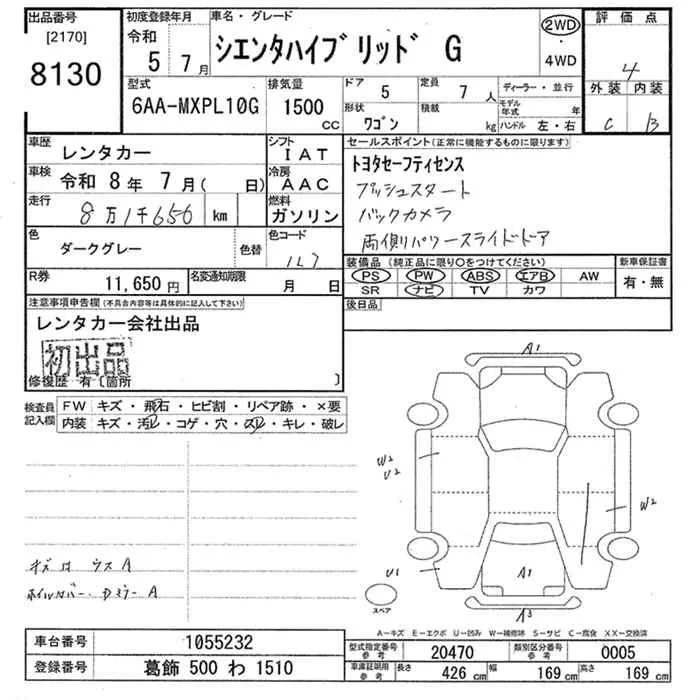 出品番号
[2170]
8130
初度登録年月
令和
5 7月
車名・グレード
シエンタハイブリッド G
2WD
・
4WD
評価点
4
外装 内装
C B
型式
6AA-MXPL10G
排気量
1500
cc
ドア 5
形状 ワゴン
定員 7人
積載 kg
ディーラー・並行
モデル年式 年
ハンドル 左・右
車歴 レンタカー
車検 令和 8年 7月( 日)
走行 8万1千656 km
色 ダークグレー
色替
シフト IAT
冷房 AAC
燃料 ガソリン
色コード 1L7
R券 11,650円
名変通知期限 月 日
セールスポイント(正常に機能するものに限ります)
トヨタセーフティセンス
プッシュスタート
バックカメラ
両側パワースライドドア
装備品(純正品に限り○をつけてください)
PS PW ABS エアB AW
SR ナビ TV カワ
新車保証書
有・無
後日品
注意事項申告欄(不具合内容等は具体的に記入して下さい)
レンタカー会社出品
初出品
修復歴 有〔箇所 〕
検査員記入欄
FW キズ・飛石・ヒビ割・リペア跡・×要
内装 キズ・汚レ・コゲ・穴・スレ・キレ・破レ
キズ ウス A
ホイルカバー・ドアミラー A
A1
W2
U2
W2
U1
A1
A3
スペア
A-キズ E-エクボ U-凹み W-補修跡 S-サビ C-腐食 XX-交換済
車台番号 1055232
登録番号 葛飾 500 わ 1510
型式指定番号 参考 20470
類別区分番号 参考 0005
車庫証明用 参考 長さ 426 cm 幅 169 cm 高さ 169 cm